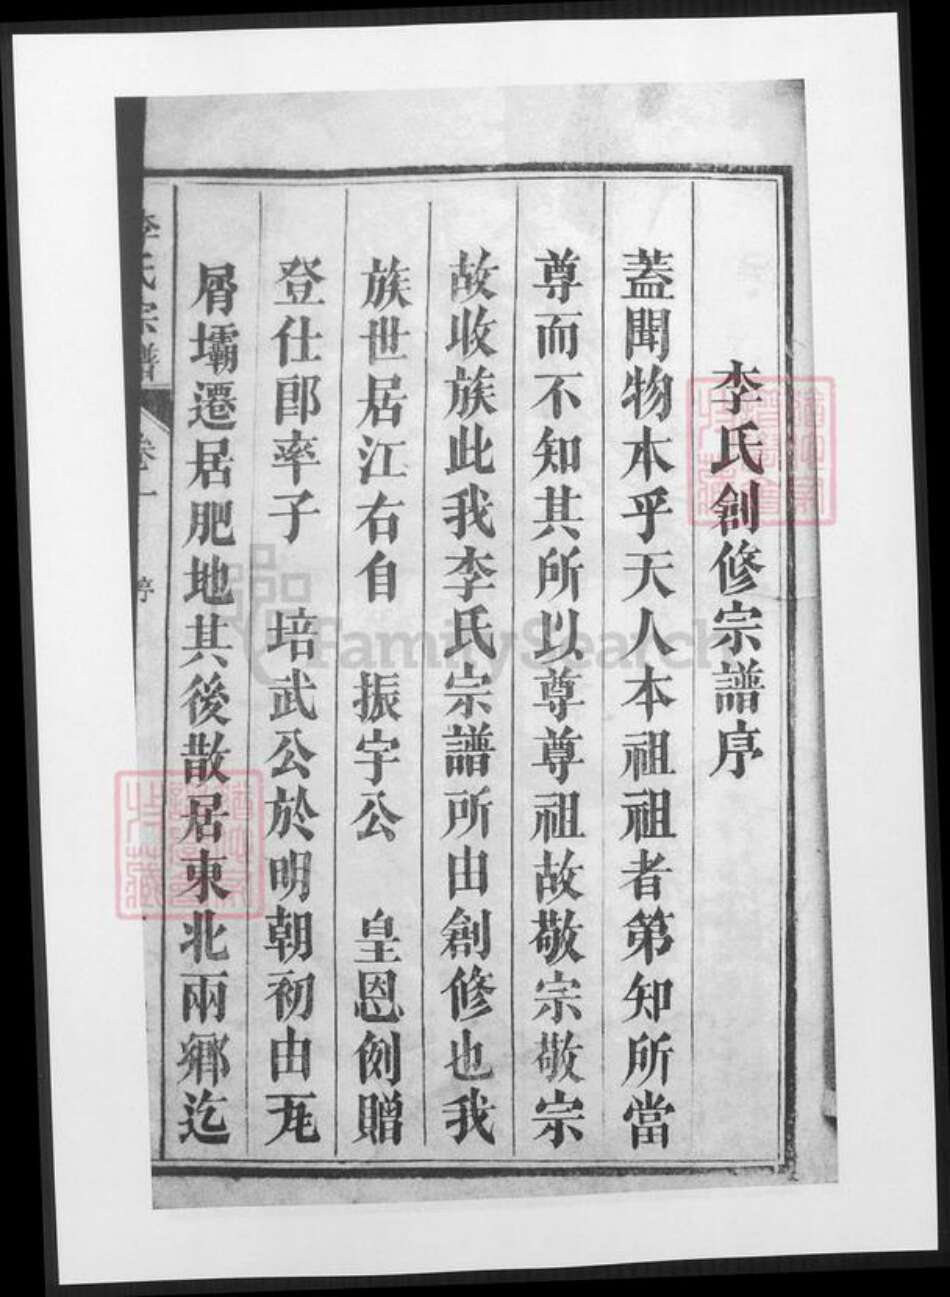 李氏創修宗譜序
蓋聞物本乎天人本祖祖者第知所當
尊而不知其所以尊尊祖故敬宗敬宗
故收族此我李氏宗譜所由創修也我
族世居江右自 振宇公 皇恩例贈
登仕郎率子 培武公於明朝初由瓦
屑壩遷居肥地其後散居東北兩鄉迄
李氏宗譜 卷一 序
FamilySearch